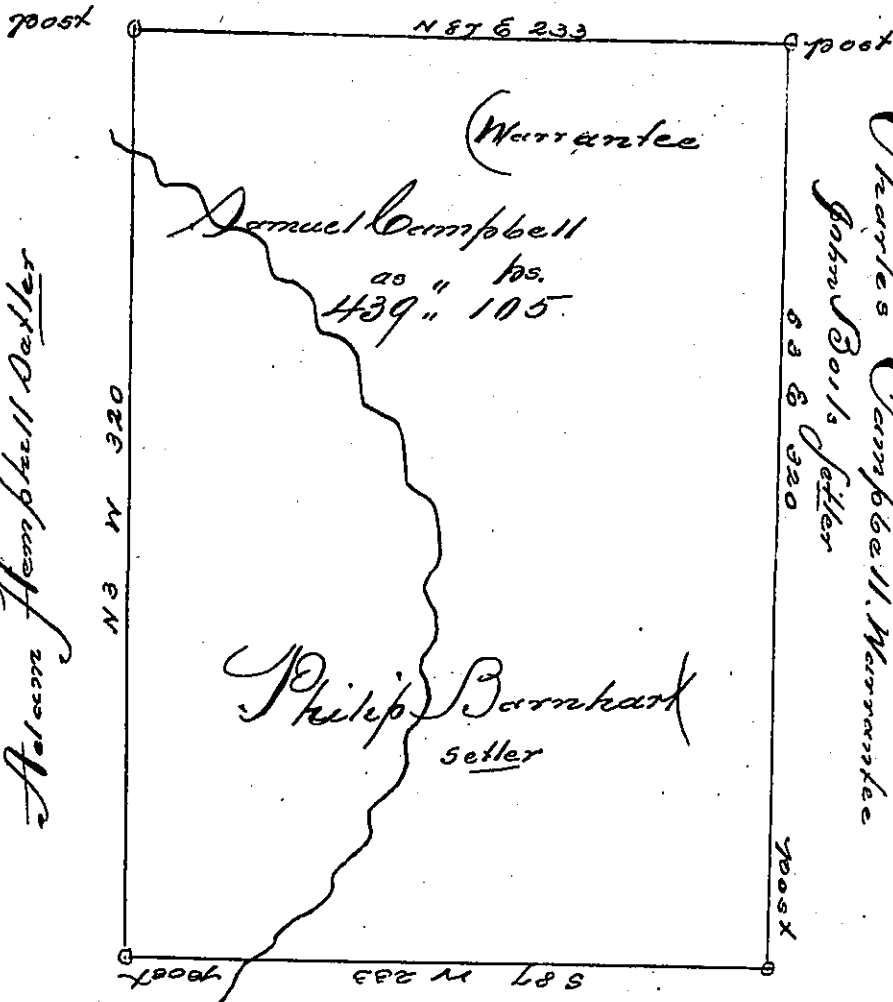 post
N 87 E 233
post
(Warrantee
Samuel Campbell
as " ps.
439 " 105.
Philip Barnhart
Setler
Adam Hemphill Setler
N 3 W 320
Charles Campbell. Warrantee
John Boils Setler
S 3 E 320
post
post
S 87 W 233